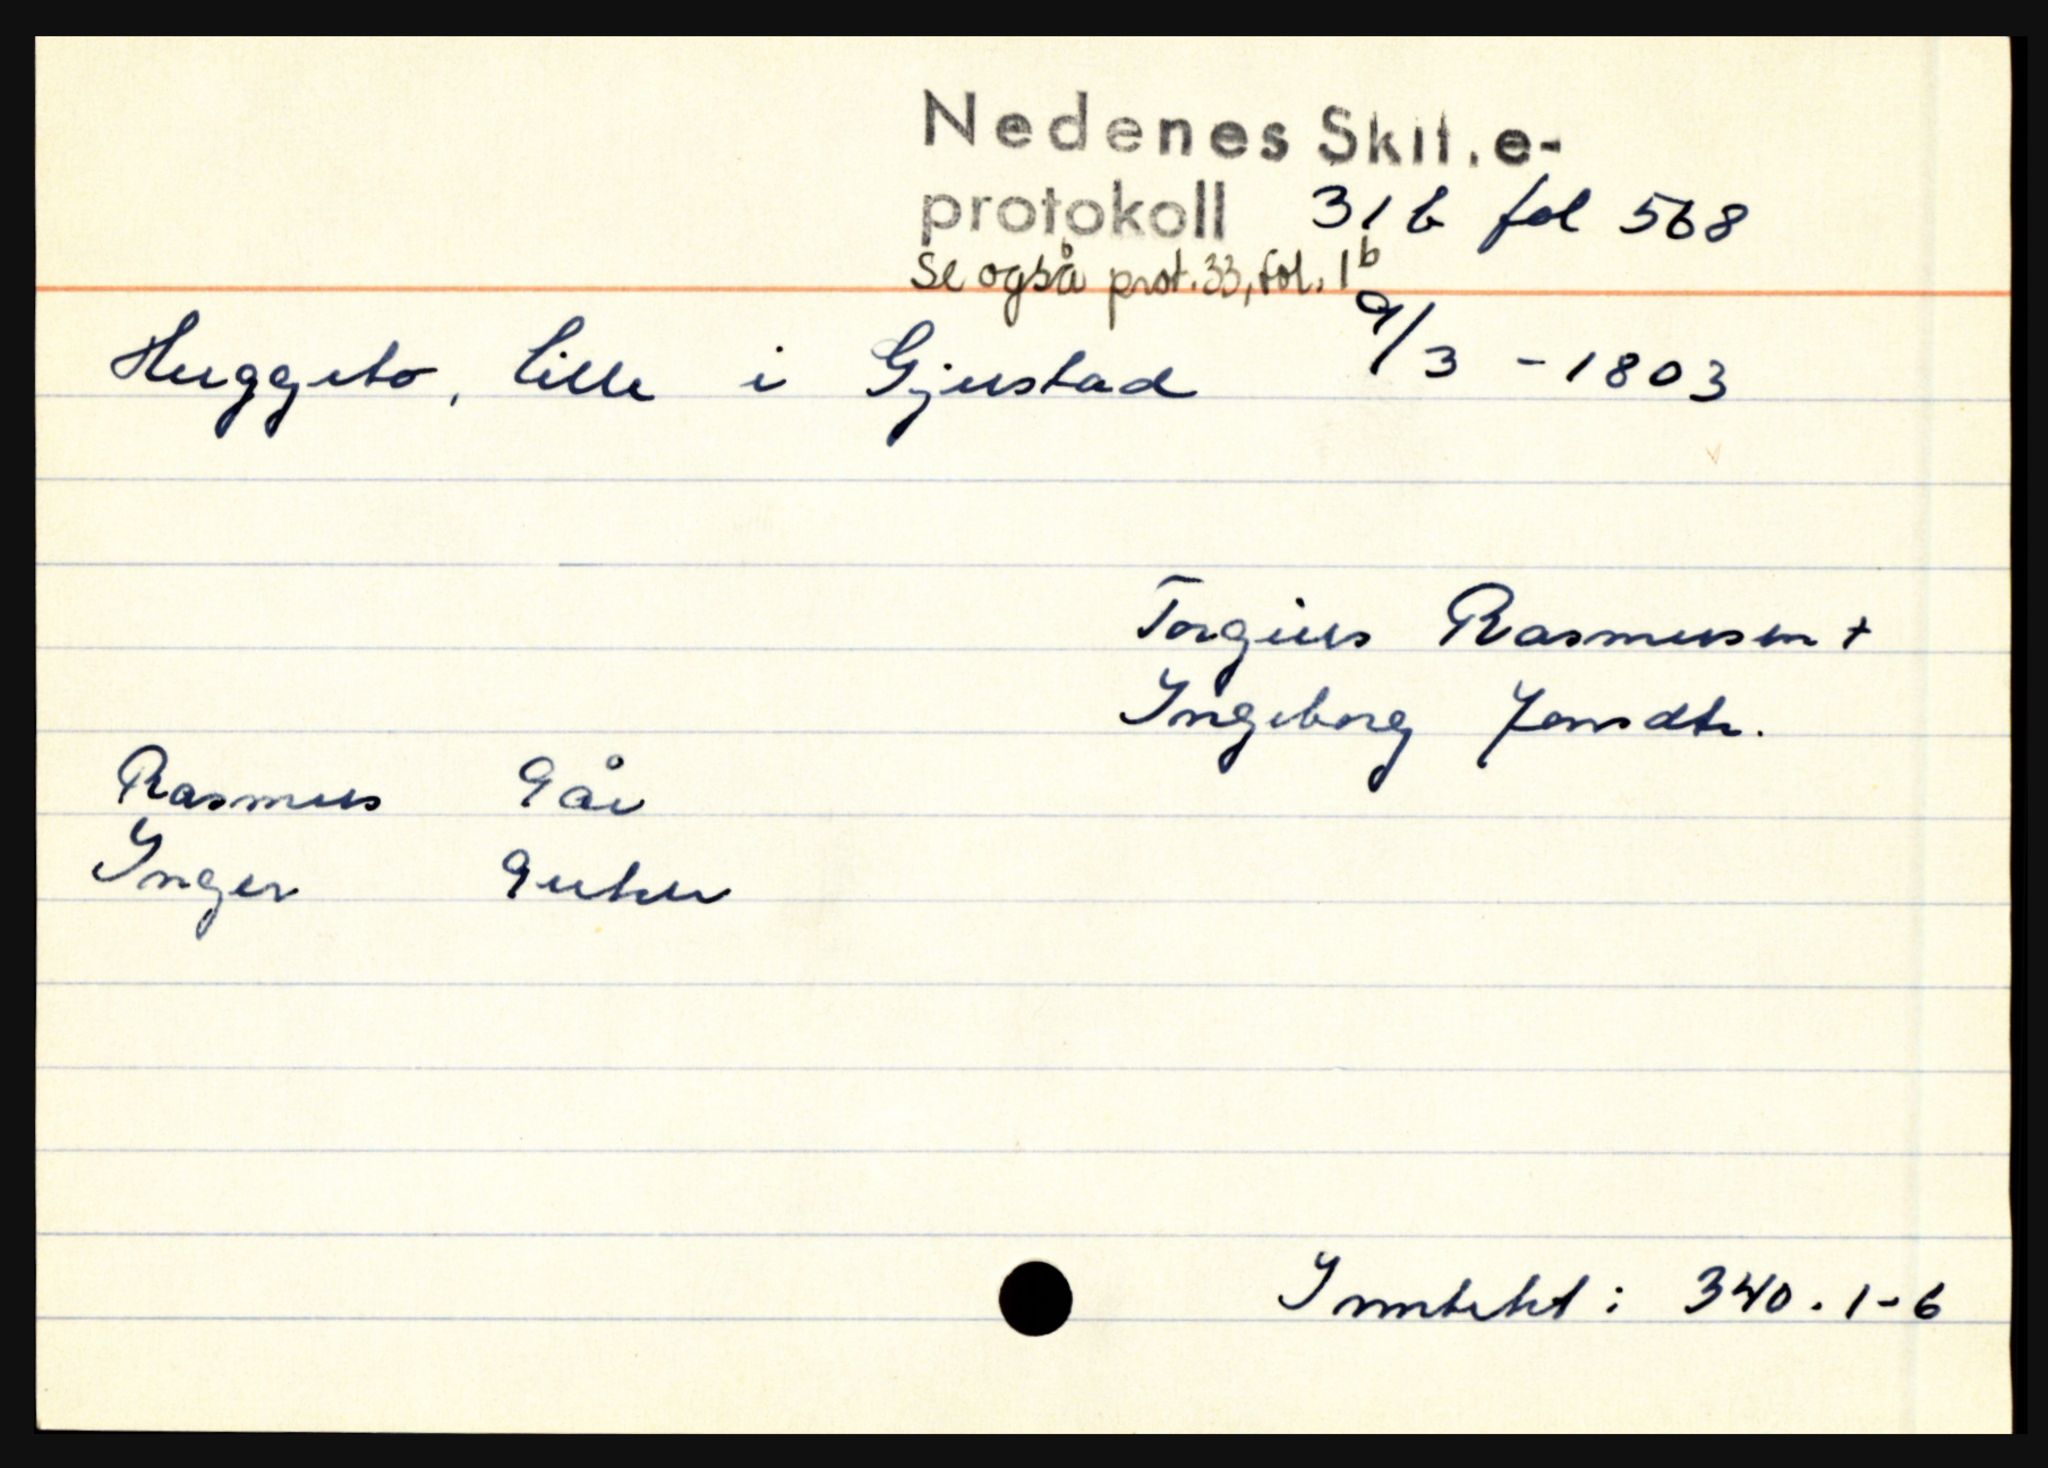 Nedenes Skif.e-
protokoll 31 b fol 568
Se også prot. 33, fol. 1b
Huggeto, Lille i Gjerstad 9/3 - 1803
Torgius Rasmussen +
Ingeborg Jensdtr.
Rasmus 9 år
Inger Guter
Inntekt: 340. 1-6